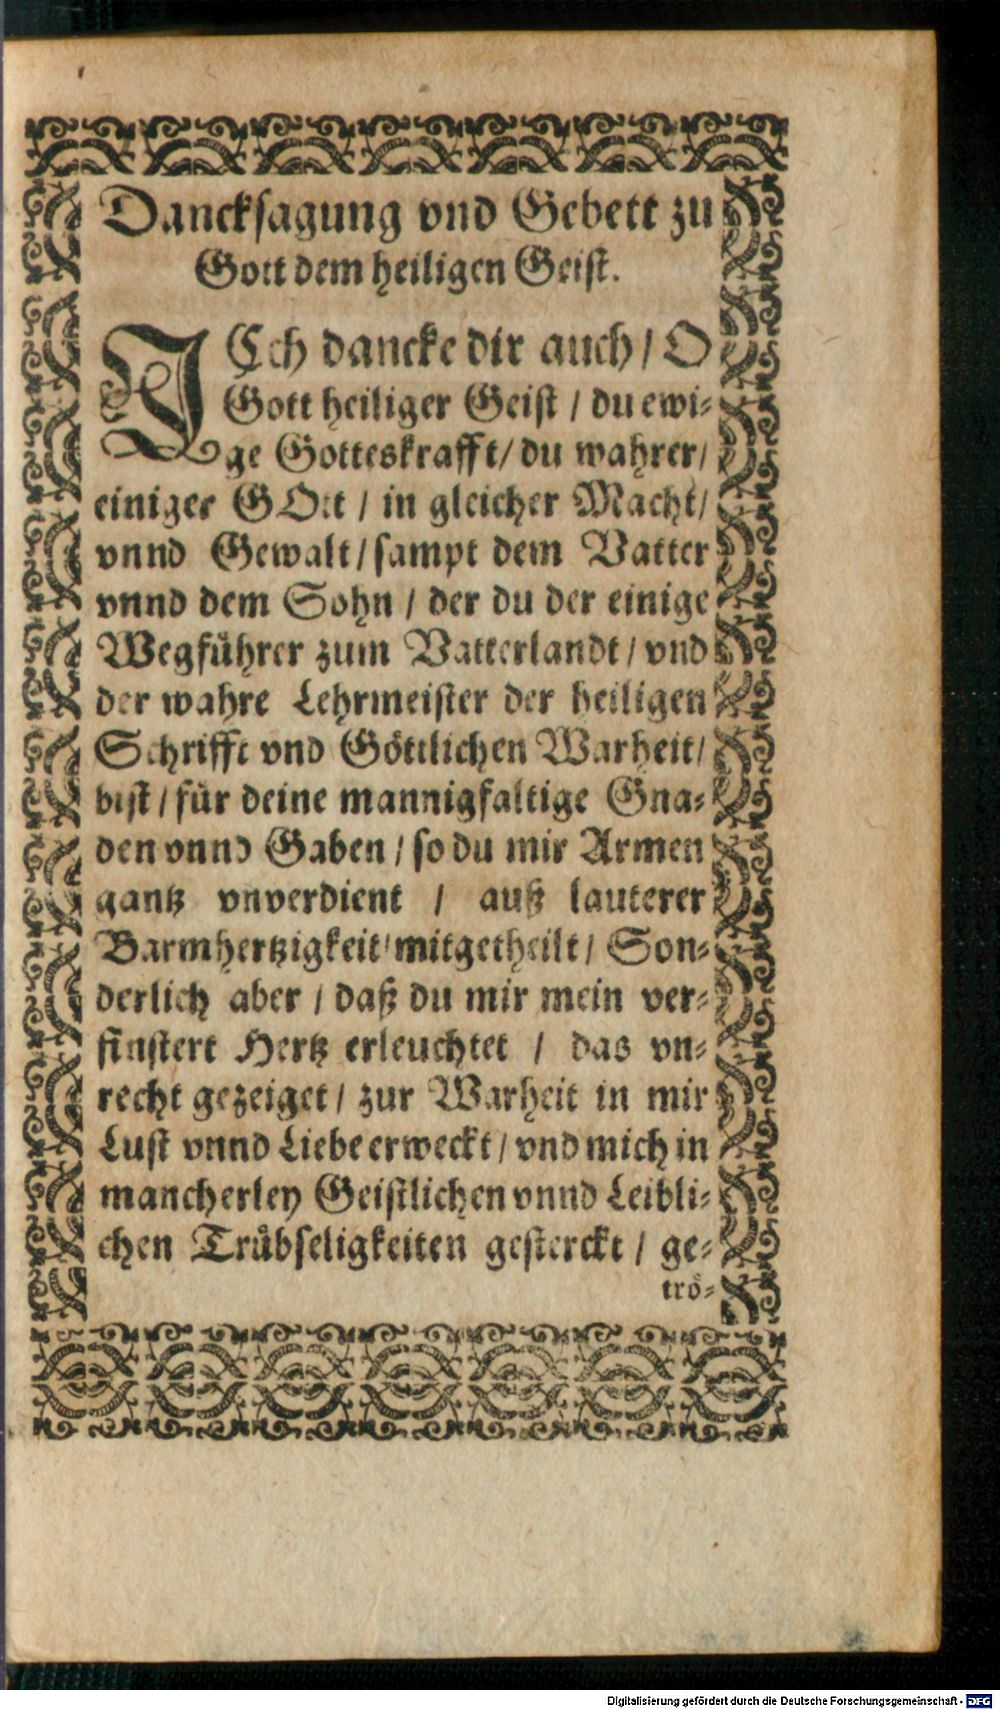 Dancksagung vnd Gebett zu
Gott dem heiligen Geist.
ICh dancke dir auch / O
Gott heiliger Geist / du ewi-
ge Gotteskrafft / du wahrer /
einiger GOtt / in gleicher Macht /
vnnd Gewalt / sampt dem Vatter
vnnd dem Sohn / der du der einige
Wegführer zum Vatterlandt / vnd
der wahre Lehrmeister der heiligen
Schrifft vnd Göttlichen Warheit /
bist / für deine mannigfaltige Gna-
den vnnd Gaben / so du mir Armen
gantz vnverdient / auß lauterer
Barmhertzigkeit / mitgetheilt / Son-
derlich aber / daß du mir mein ver-
finstert Hertz erleuchtet / das vn-
recht gezeiget / zur Warheit in mir
Lust vnnd Liebe erweckt / vnd mich in
mancherley Geistlichen vnnd Leibli-
chen Trübseligkeiten gesterckt / ge-
trö-
Digitalisierung gefördert durch die Deutsche Forschungsgemeinschaft - DFG